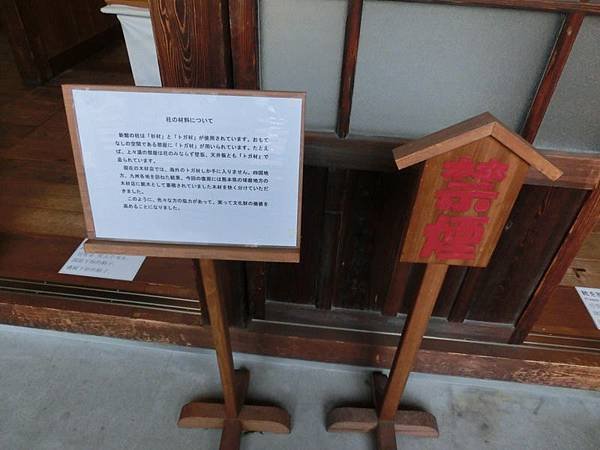 柱の材料について
新館の柱は「杉材」と「トガ材」が使用されています。おもて
なしの空間である部屋に「トガ材」が用いられています。たとえ
ば、上々道の部屋は柱のみならず壁板、天井板とも「トガ材」で
造られています。
現在の木材店では、海外のトガ材しか手に入りません。四国地
方、九州各地を訪ねた結果、今回の復原には熊本県の球磨地方の
木材店に銘木として蓄積されていました木材を快く分けていただ
きました。
このように、色々な方の協力があって、突って文化財の価値を
高めることになりました。
禁煙